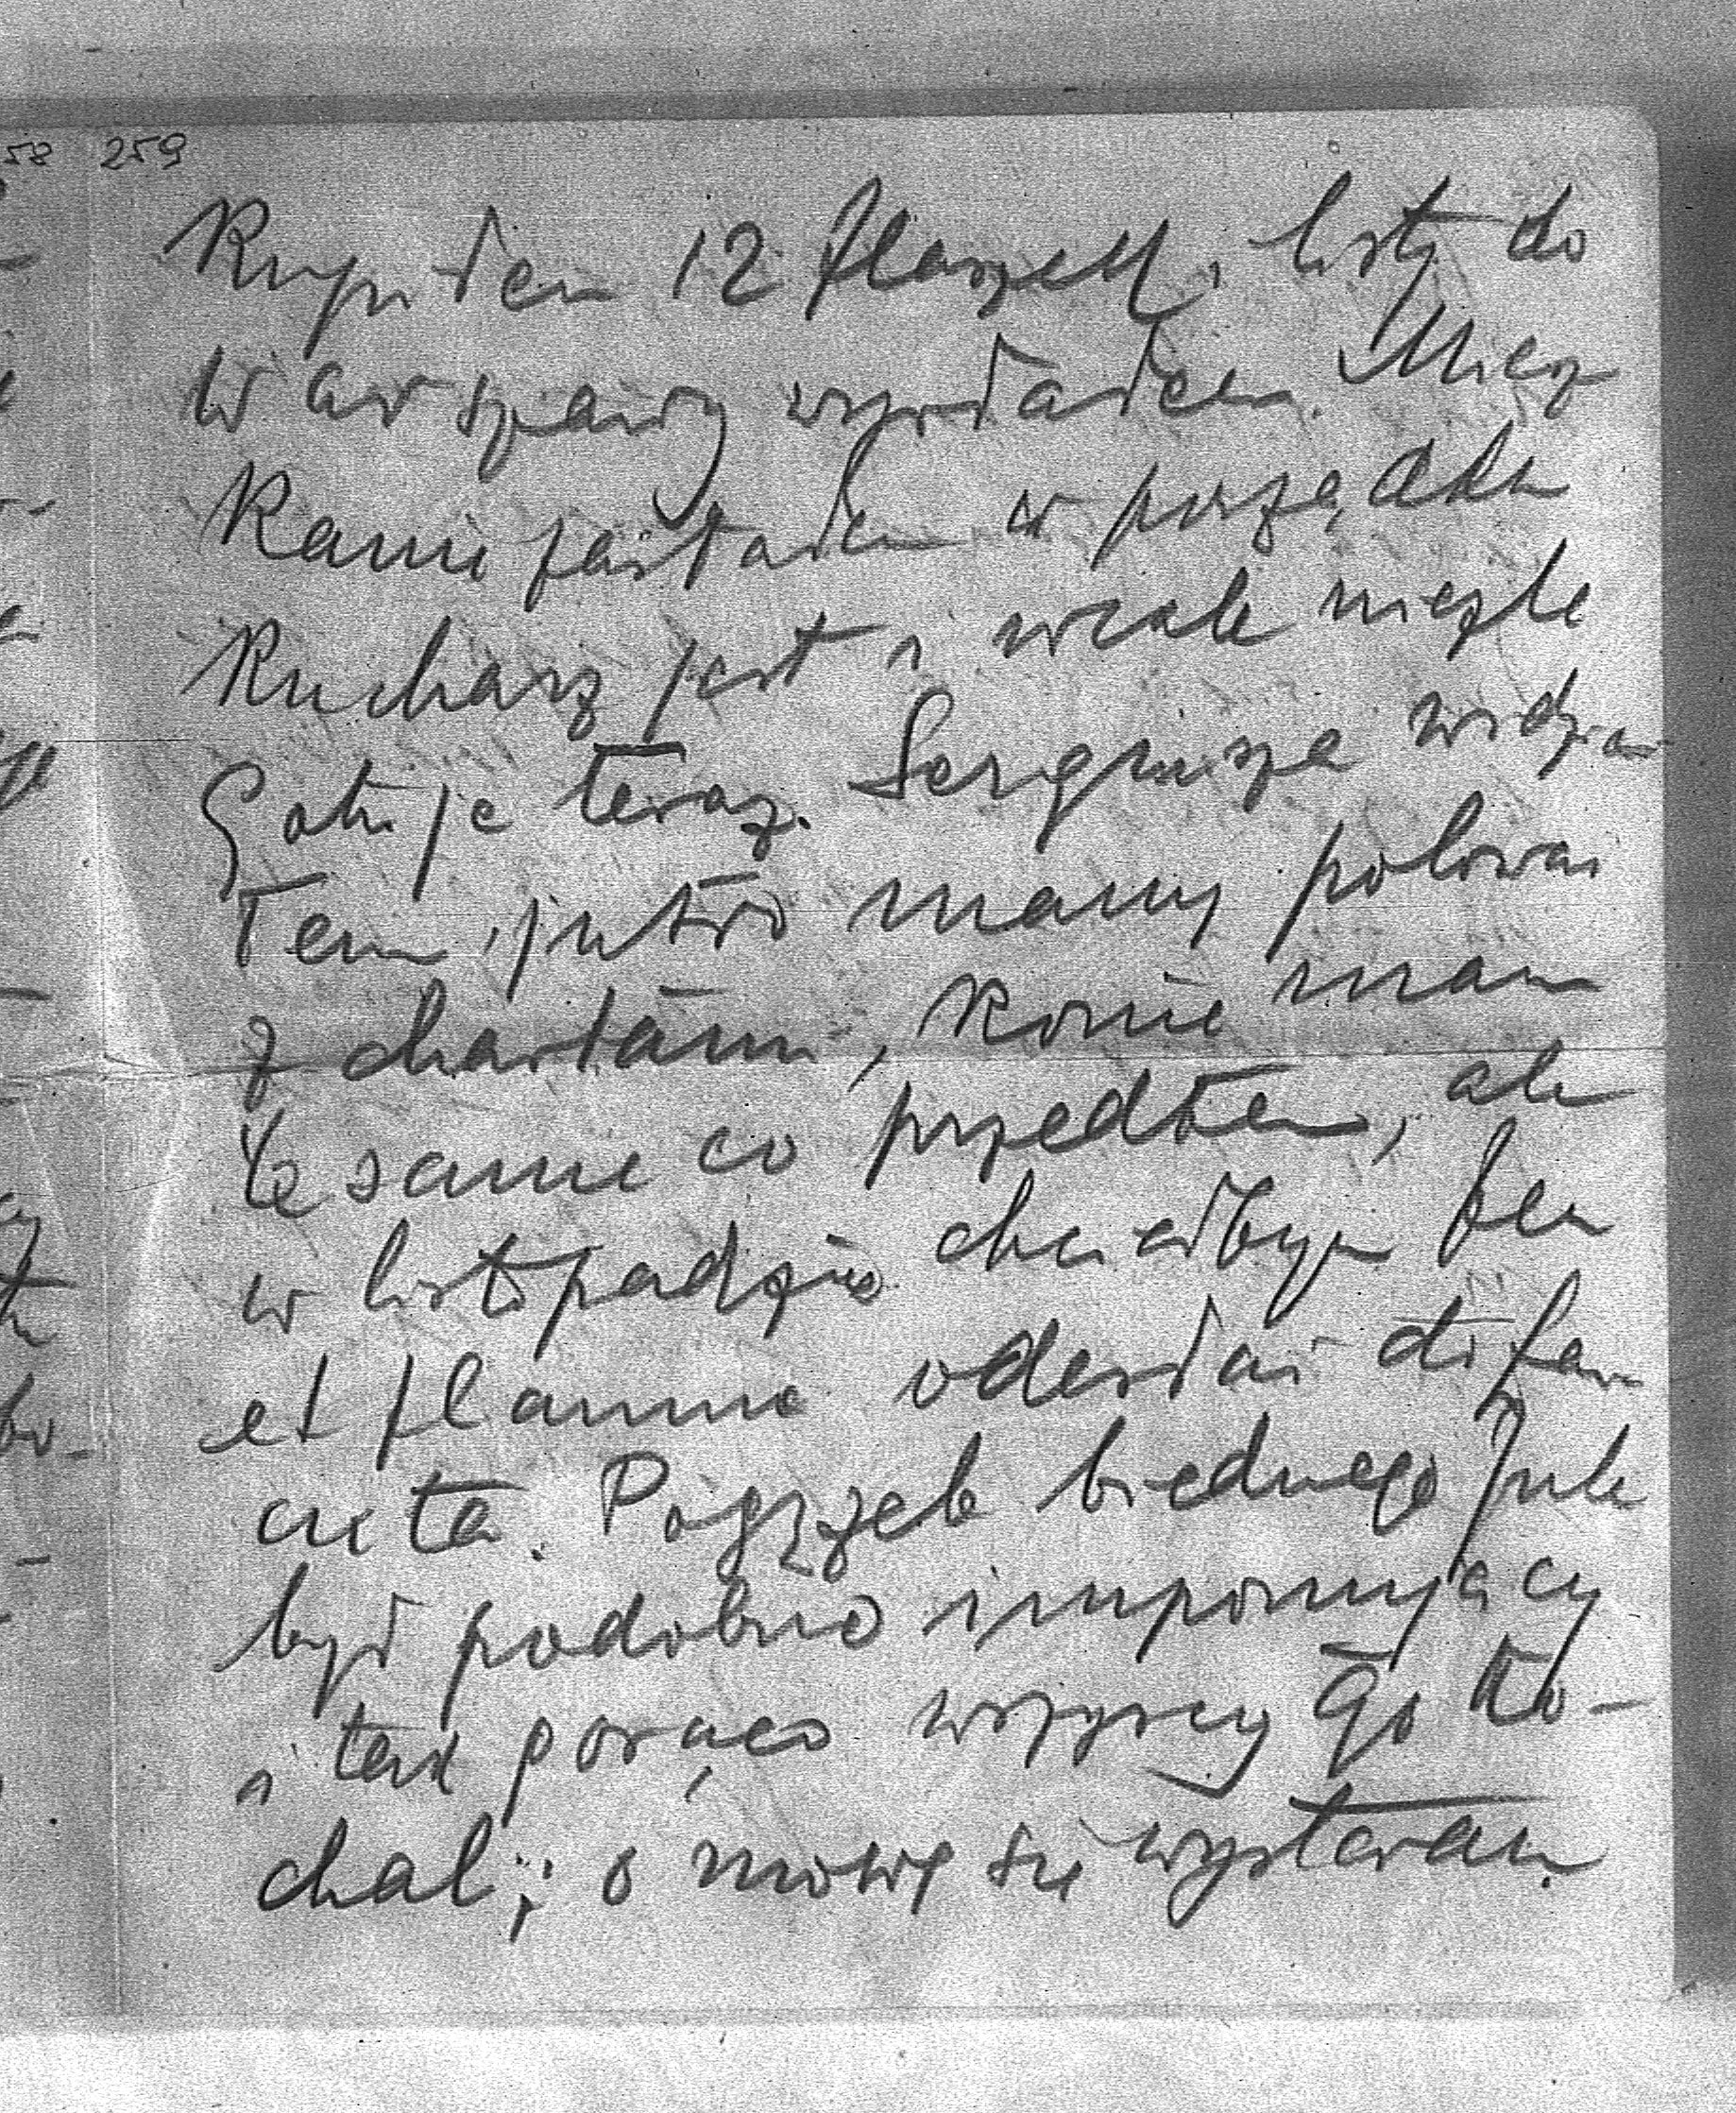 58 259
Kupiłem 12 flaszek, listy do
Warszawy wysłałem. Miesz
kanie zastałem w porządku
Kucharz jest i wcale nieźle
Gotuje teraz. Sergiusza widzia
łem, jutro mamy polować
z chartami, konie mam
te same co przedtem, ale
w listopadzie chciałbym fer
et flamme odesłać di
cieta. Pogrzeb biednego Jula
był podobno imponujący
i tak gorąco wszyscy Go ko-
chali; o mowę się wystaram.